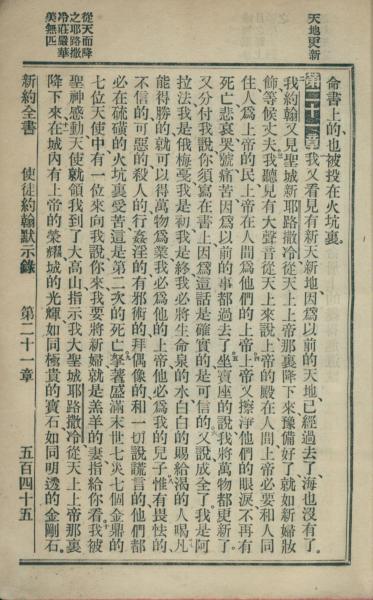 天地更新
從天而降
之耶路撒
冷莊嚴華
美無匹
命書上的也被投在火坑裏。
第二十一章我又看見有新天新地因爲以前的天地已經過去了海也沒有了。
我約翰又見聖城新耶路撒冷從天上上帝那裏降下來豫備好了就如新婦妝
飾等候丈夫我聽見有大聲音從天上來說上帝的殿在人間上帝必要和人同
住人爲上帝的民上帝在人間爲他們的上帝上帝又擦淨他們的眼淚不再有
死亡悲哀哭號痛苦因爲以前的事都過去了坐寶座的說我將萬物都更新了。
又分付我說你須寫在書上因爲這話是確實的是可信的又說成全了我是阿
拉法我是俄梅戞我是初我是終我必將生命泉的水白白的賜給渴的人喝凡
能得勝的就可以得萬物爲業我必爲他的上帝他必爲我的兒子惟有畏怯的
不信的可惡的殺人的行姦淫的有邪術的拜偶像的和一切說謊言的他們都
必在硫磺的火坑裏受苦這是第二次的死亡拏著盛滿末世七災七個金鼎的
七位天使中有一位來向我說你來我要將新婦就是羔羊的妻指給你看我被
聖神感動天使就領我到了大高山指示我大聖城耶路撒冷從天上上帝那裏
降下來在城內有上帝的榮耀城的光輝如同極貴的寶石如同明透的金剛石。
新約全書 使徒約翰默示錄 第二十一章 五百四十五